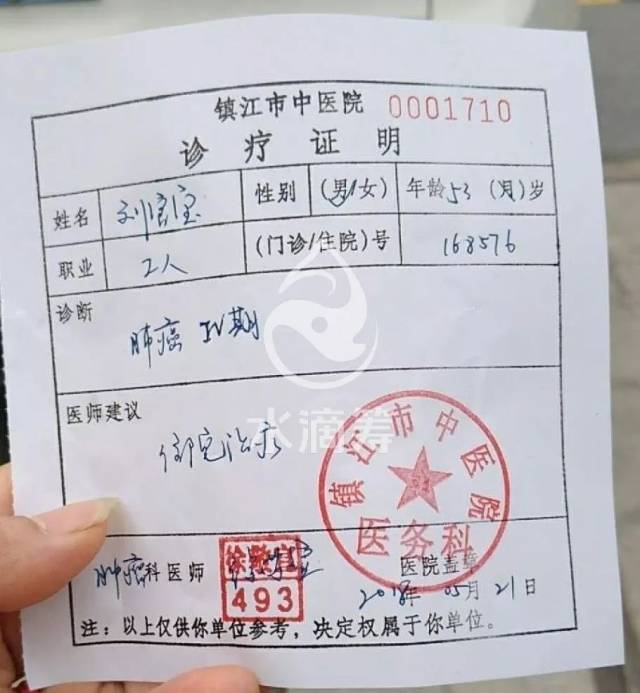 镇江市中医院 0001710
诊疗证明
姓名 性别 (男/女) 年龄 53 (月) 岁
职业 工人 (门诊/住院)号 168576
诊断
肺癌 IV期
水滴筹
医师建议
住院治疗
镇江市中医院
医务科
肿瘤科医师 493 医院盖章
2018年05月21日
注:以上仅供你单位参考,决定权属于你单位。